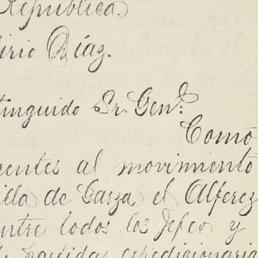 República.
irio Díaz.
tinguido Sr. Genl.
Como
entes al movimiento
illa de Garza el Alferez
entre todos los Jefes y
partidas expedicionaria